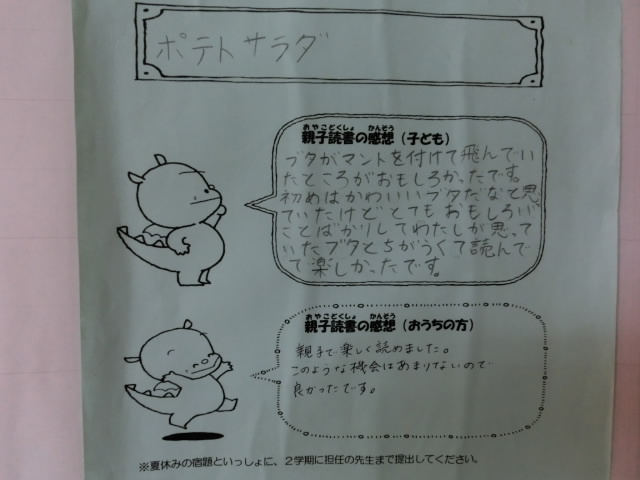 ポテトサラダ
おやこどくしょ かんそう
親子読書の感想(子ども)
ブタがマントを付けて飛んでい
たところがおもしろかったです。
初めはかわいいブタだなと思
ていたけどとてもおもしろい
ことばかりしてわたしが思っ
ていたブタとちがうくて読んで
て楽しかったです。
おやこどくしょ かんそう
親子読書の感想(おうちの方)
親子で楽しく読めました。
このような機会はあまりないので
良かったです。
※夏休みの宿題といっしょに、2学期に担任の先生まで提出してください。